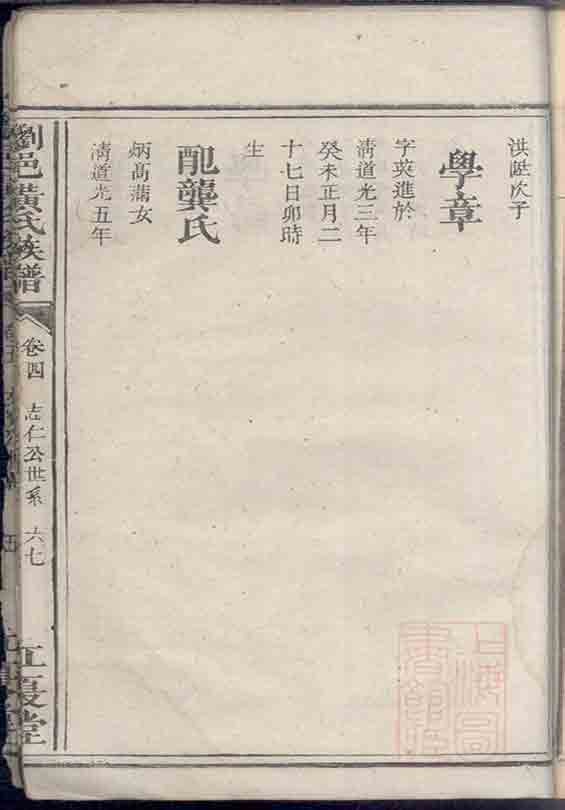 洪陞次子
學章
字英進於
清道光三年
癸未正月二
十七日卯時
生
配龔氏
炳高蒲女
清道光五年
劉邑黃氏族譜
卷四 志仁公世系 六七
江夏堂
上海圖
書館藏